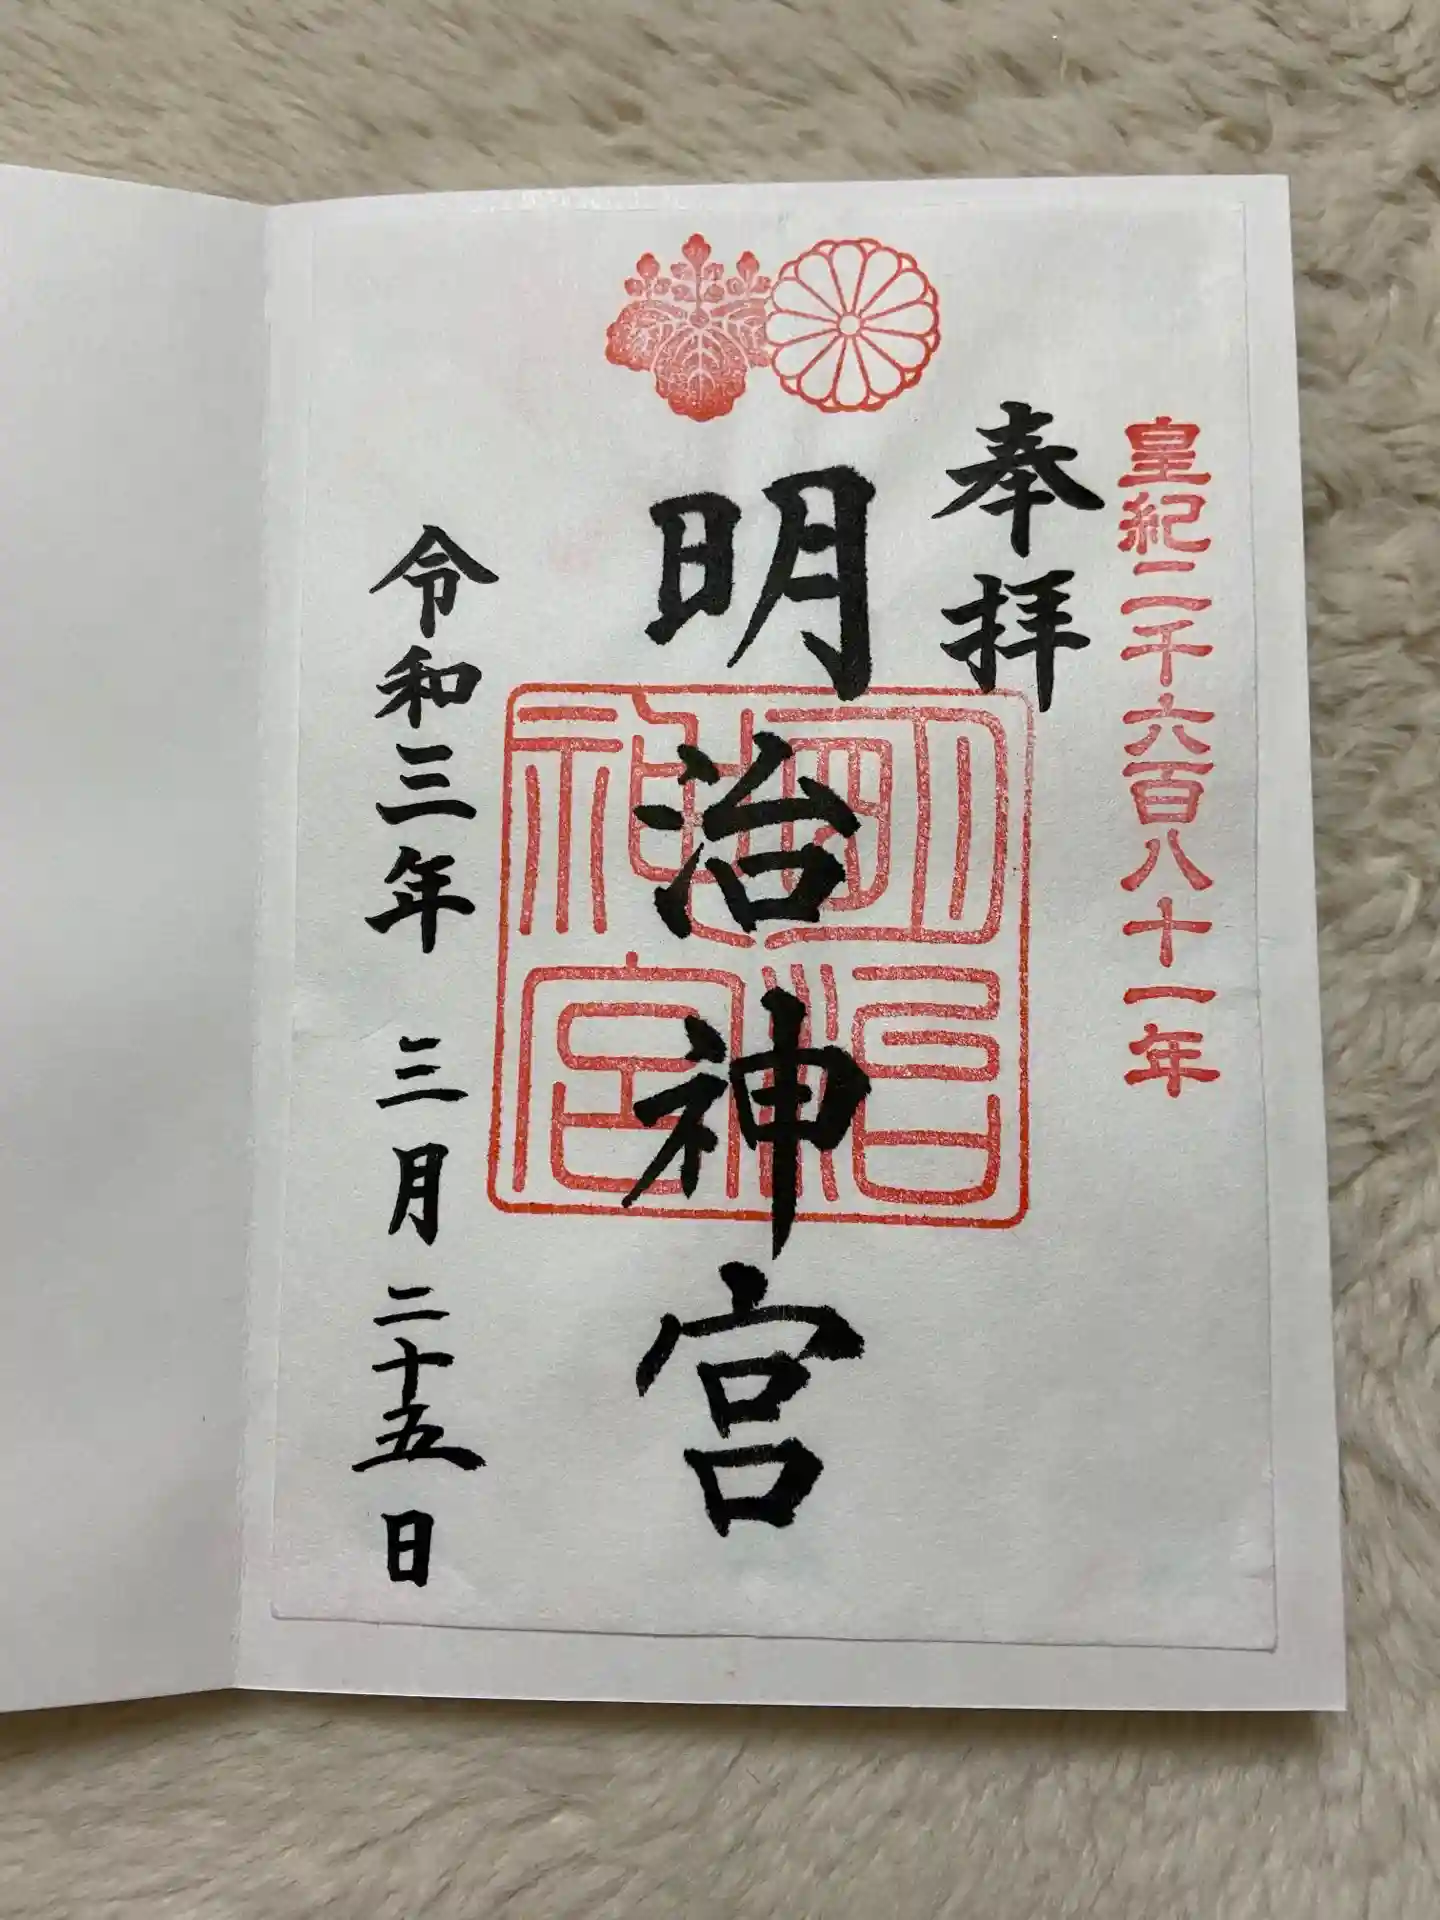 皇紀二千六百八十一年
奉拝
明治神宮
明治神宮
令和三年 三月 二十五日